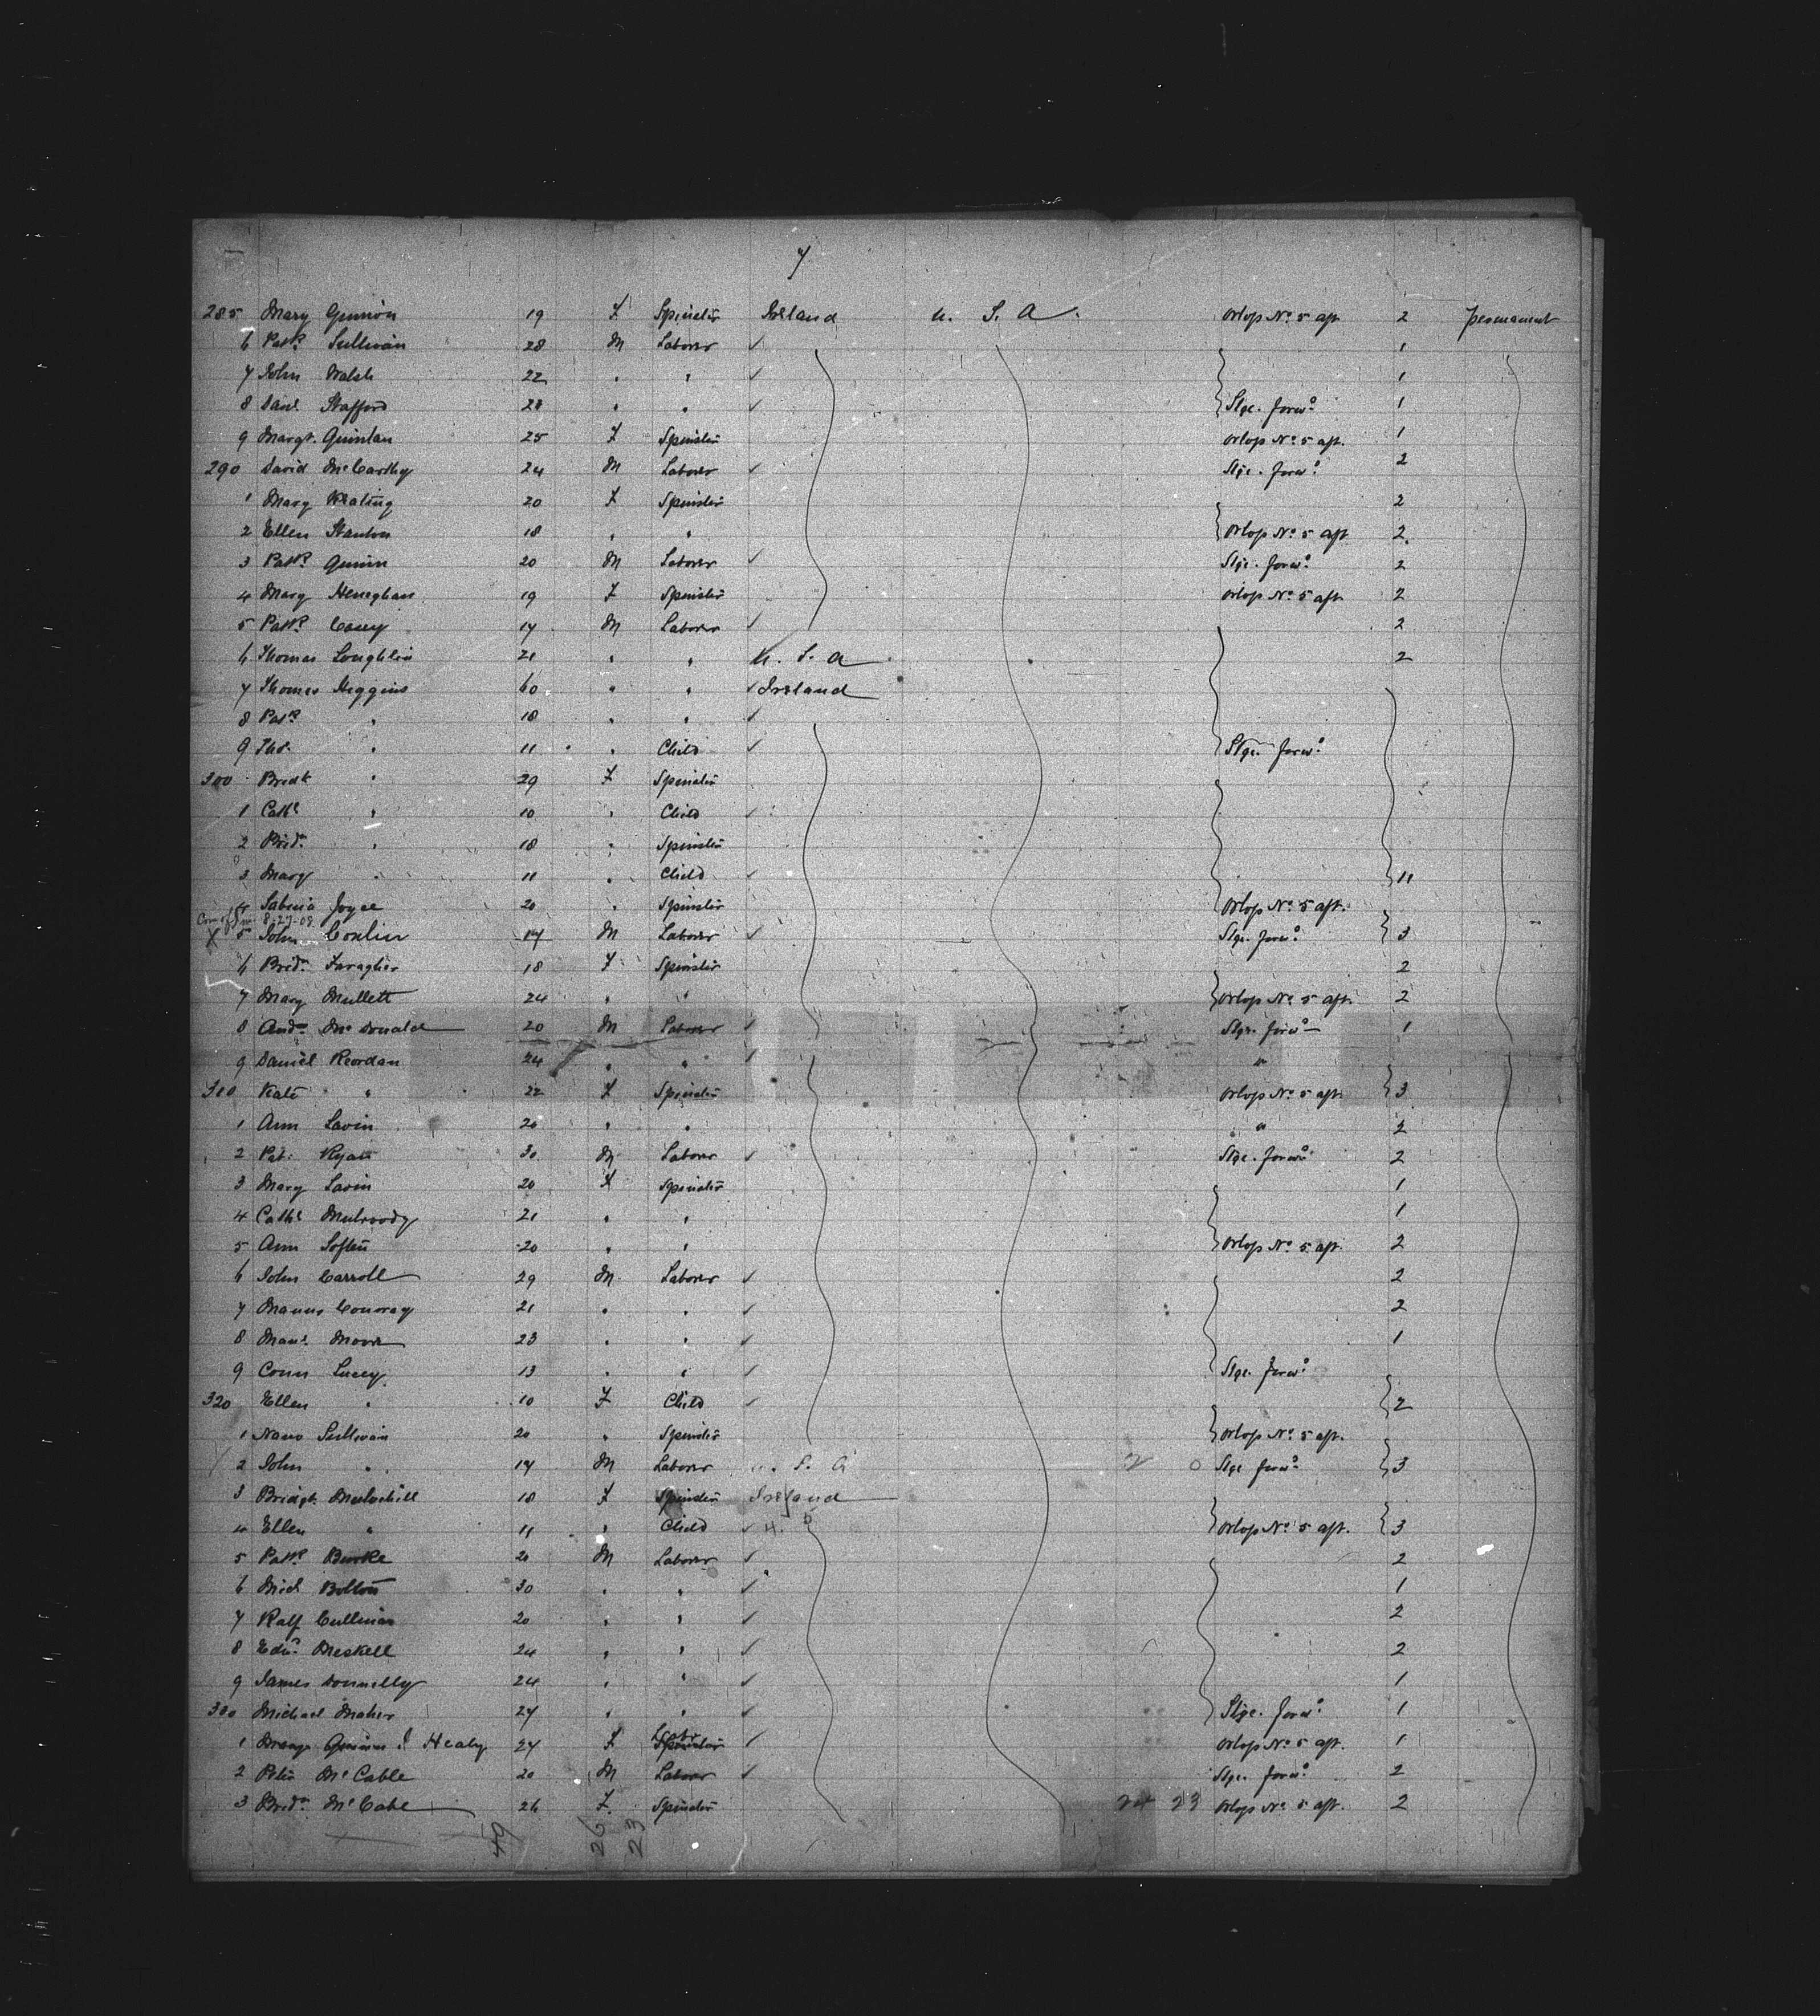 7
285 Mary Gunion 19 F Spinster Ireland U. S. A. Orlop No. 5 aft 2 permanent
6 Patk. Sullivan 28 M Laborer ✓ 1
7 John Walsh 22 " " ✓ 1
8 Danl. Stafford 28 " " ✓ Stge. forwd. 1
9 Margt. Quinlan 25 F Spinster Orlop No. 5 aft. 1
290 David McCarthy 24 M Laborer ✓ Stge. forwd. 2
1 Mary Keating 20 F Spinster 2
2 Ellen Stanton 18 " " Orlop No. 5 aft 2
3 Patk. Quinn 20 M Laborer ✓ Stge. forwd. 2
4 Mary Heneghan 19 F Spinster Orlop No. 5 aft 2
5 Patk. Casey 17 M Laborer ✓ 2
6 Thomas Loughlin 21 " " U. S. A 2
7 Thomas Higgins 60 " " ✓ Ireland
8 Patk. " 18 " " ✓
9 Tho. " 11 " Child ✓ Stge. forwd.
300 Bredt " 29 F Spinster
1 Cath. " 10 " Child ✓
2 Brid. " 18 " Spinster
3 Mary " 11 " Child ✓ 11
4 Sabina Joyce 20 " Spinster Orlop No. 5 aft.
8-27-08
X 5 John Conlin 17 M Laborer ✓ Stge. forwd. 3
6 Brid. Faragher 18 F Spinster 2
7 Mary Mullett 24 " " Orlop No. 5 aft. 2
8 Andw. McDonald 20 M Laborer ✓ Stge. forwd. 1
9 Daniel Reordan 24 " " ✓ "
310 Kate " 22 F Spinster Orlop No. 5 aft. 3
1 Ann Lavin 20 " " " 2
2 Pat. Ryan 30 M Laborer ✓ Stge. forwd. 2
3 Mary Lavin 20 F Spinster 1
4 Cath. Mulroody 21 " " 1
5 Ann Softin 20 " " Orlop No. 5 aft. 2
6 John Carroll 29 M Laborer ✓ 2
7 Manus Conway 21 " " ✓ 2
8 Moore 23 " " ✓ 1
9 Conn Lucey 13 " " ✓ Stge. forwd.
320 Ellen " 10 F Child ✓ 2
1 Nano Sullivan 20 " Spinster Orlop No. 5 aft.
2 John " 17 M Laborer U. S. A 2 0 Stge forwd. 3
3 Bridgt. Mulvihill 18 F Spinster Ireland
4 Ellen " 11 " Child ✓ Orlop No. 5 aft. 3
5 Patk. Burke 21 M Laborer ✓ 2
6 Michl Bolton 30 " " ✓ 1
7 Ralf Cullinan 20 " " ✓ 2
8 Edw. Meskell 24 " " ✓ 2
9 James Donnelly 24 " " ✓ 1
330 Michael Maher 27 " " ✓ Stge. forwd. 1
1 Quinn Healy 27 F Spinster ✓ Orlop No. 5 aft. 1
2 Peter McCable 20 M Laborer ✓ Stge. forwd. 2
3 Brid. McCabe 26 F. Spinster 24 23 Orlop No. 5 aft. 2
49 26 23